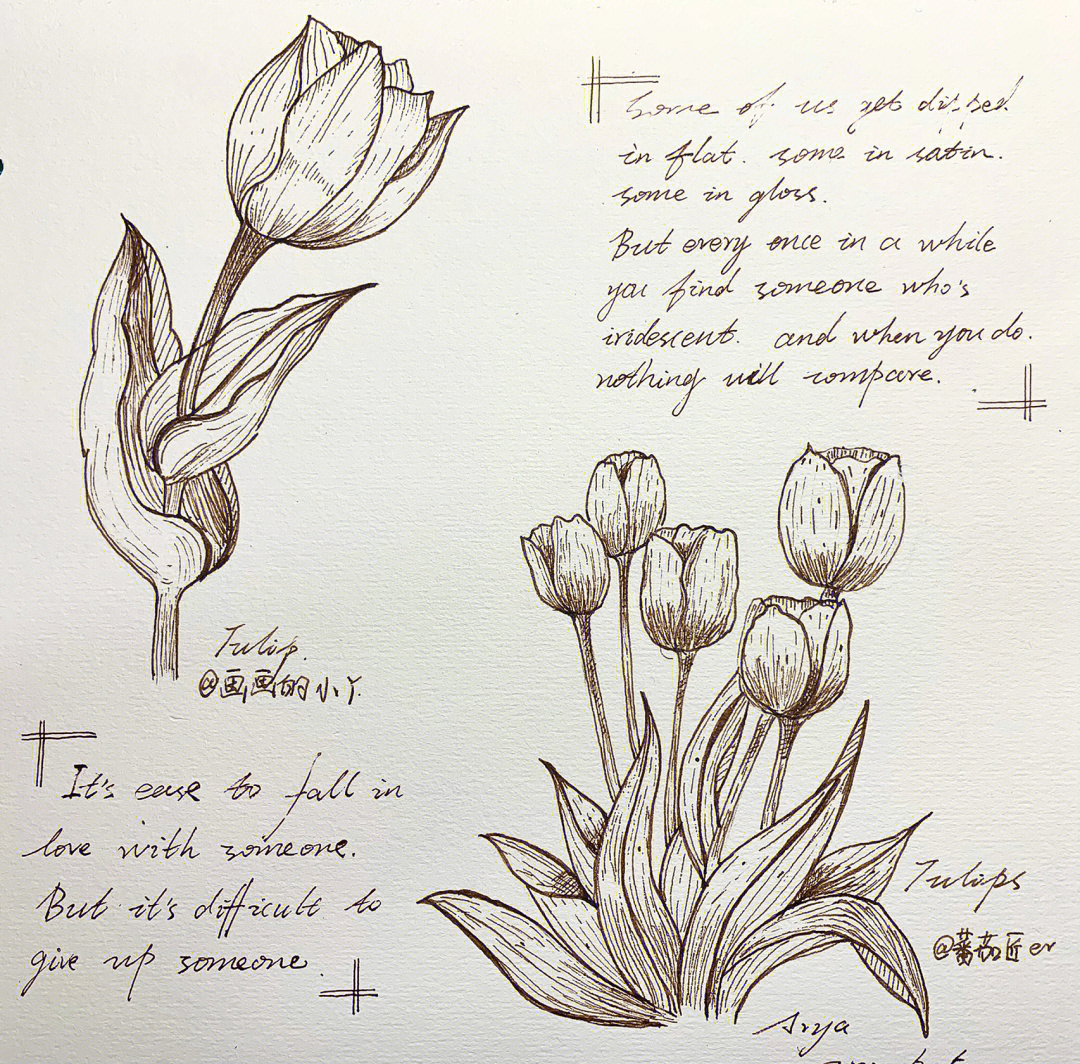 Some of us get dipped
in flat. some in satin.
some in gloss.
But every once in a while
you find someone who's
iridescent. and when you do.
nothing will compare.
Tulip.
@画画的小丫.
It's ease to fall in
love with someone.
But it's difficult to
give up someone.
Tulips
@蕃茄匠er
Arya